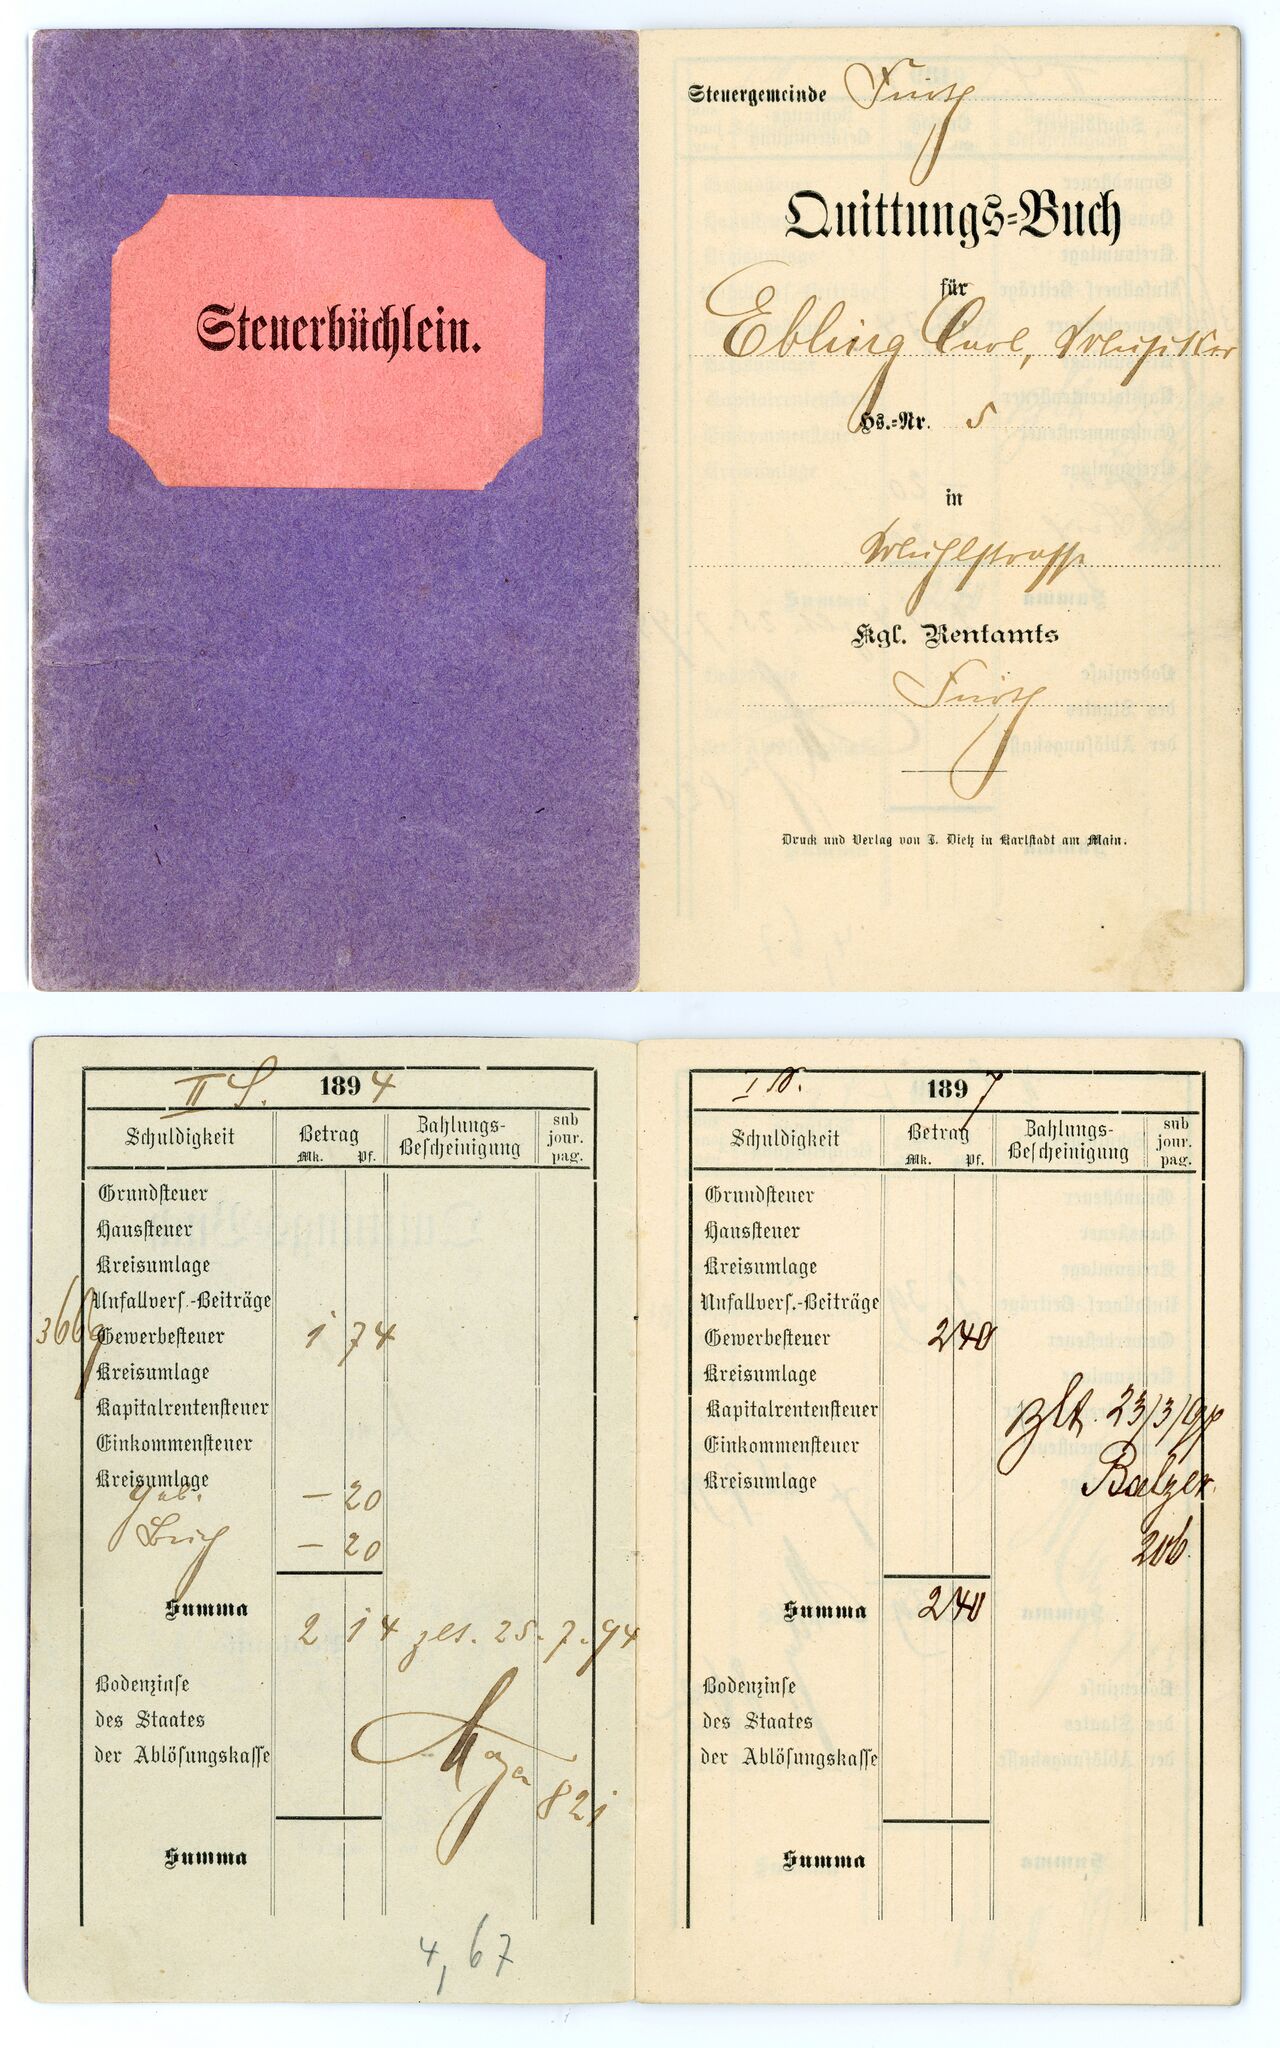 Steuerbüchlein.
Steuergemeinde Fürth
Quittungs-Buch
für
Ebling Carl, Musiker
Hs.-Nr. 5
in
Mühlstrasse
Kgl. Rentamts
Fürth
Druck und Verlag von J. Dietz in Karlstadt am Main.
II 1894
Schuldigkeit Betrag Zahlungs-Bescheinigung sub jour. pag.
Mk. Pf.
Grundsteuer
Haussteuer
Kreisumlage
Unfallvers.-Beiträge
3669 Gewerbesteuer 1 74
Kreisumlage
Kapitalrentensteuer
Einkommensteuer
Kreisumlage
Geb. – 20
– 20
Summa 2 14 zlt. 25.7.94
Bodenzinse
des Staates
der Ablösungskasse
821
Summa
4,67
I 1897
Schuldigkeit Betrag Zahlungs-Bescheinigung sub jour. pag.
Mk. Pf.
Grundsteuer
Haussteuer
Kreisumlage
Unfallvers.-Beiträge
Gewerbesteuer 2 40
Kreisumlage
Kapitalrentensteuer zlt. 23/3/97
Einkommensteuer
Kreisumlage Balzer.
206
Summa 2 40
Bodenzinse
des Staates
der Ablösungskasse
Summa